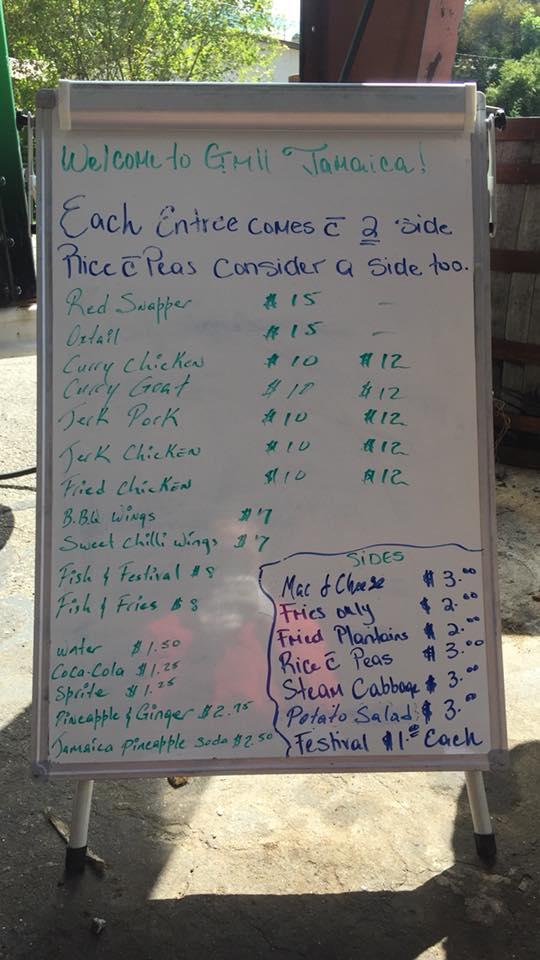 Welcome to Grill Jamaica!
Each Entree comes c̄ 2 side
Rice c̄ Peas consider a side too.
Red Snapper $15 -
Oxtail $15 -
Curry Chicken $10 $12
Curry Goat $10 $12
Jerk Pork $10 $12
Jerk Chicken $10 $12
Fried Chicken $10 $12
B.B.Q Wings $7
Sweet Chilli Wings $7
Fish & Festival $8
Fish & Fries $8
Water $1.50
Coca-Cola $1.25
Sprite $1.25
Pineapple & Ginger $2.75
Jamaica Pineapple Soda $2.50
SIDES
Mac & Cheese $3.00
Fries only $2.00
Fried Plantains $2.00
Rice c̄ Peas $3.00
Steam Cabbage $3.00
Potato Salad $3.00
Festival $1.00 Each